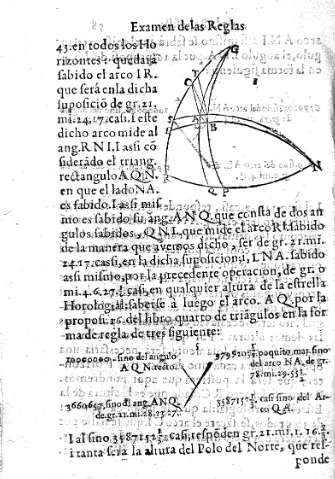 Examen de las Reglas
43. en todos los Ho
rizontes: quedarà
sabido el arco I R.
que serà en la dicha
suposiciõ de gr. 21.
mi. 24. 17. casi. I este
dicho arco mide al
ang. R N I. I assi cõ
siderãdo el triang.
rectangulo A Q N.
en que el lado N A.
es sabido. I assi mis
mo es sabido su, ang. A N Q. que consta de dos an
gulos sabidos, Q N I. que mide el arco R I. sabido
de la manera que avemos dicho, ser de gr. 21. mi.
24. 17. casi, en la dicha suposicion, i, I N A. sabido
assi mismo, por la precedente operacion, de gr. 0
mi. 4. 6. 27. casi, en qualquier altura de la estrella
Horologial: saberse à luego el arco. A Q. por la
proposi. 26. del libro quarto de triãgulos en la for
ma de regla de tres siguiente:
10000000. sino del angulo
A Q N. recto.
poquito mas. sino
del arco N A. de gr.
78. mi. 29. 53
3660657. sino d'l ang. A N Q.
de gr. 21. mi. 28. 23. 27.
3587152. casi sino del Ar
co Q A.
I al sino 3587152. casi, respõden gr. 21. mi. 1. 16.
i tanta serà la altura del Polo del Norte, que res-
ponde
G
C
T
I
S
A
B
R
Q
P
N